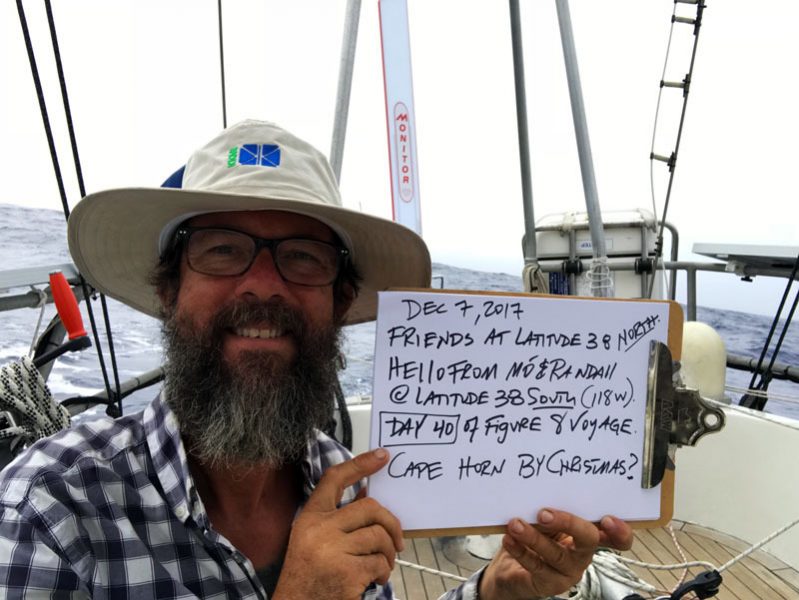 MONITOR
DEC 7, 2017
FRIENDS AT LATITUDE 38 NORTH.
HELLO FROM MŌ & RANDALL
@ LATITUDE 38 SOUTH (118W).
DAY 40 OF FIGURE 8 VOYAGE.
CAPE HORN BY CHRISTMAS?